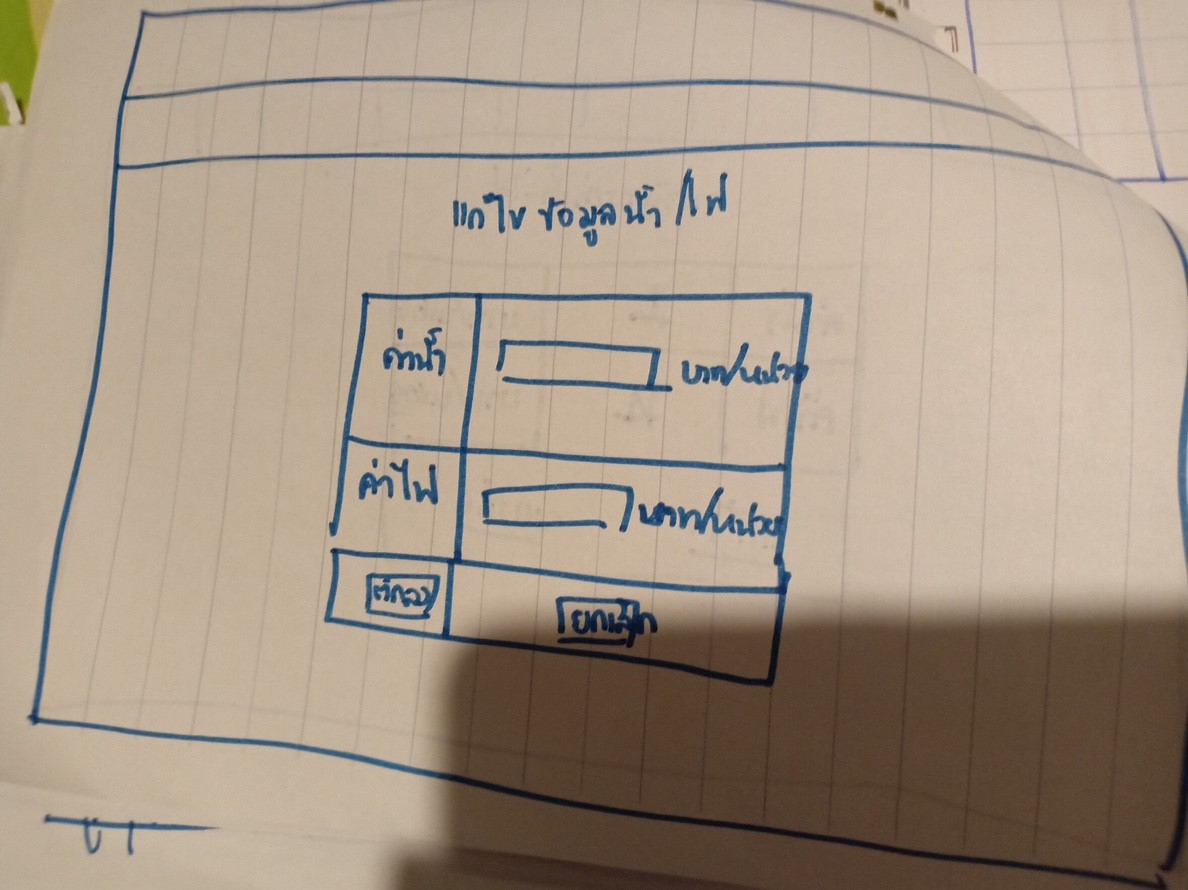 แก้ไขข้อมูลน้ำ/ไฟ
ค่าน้ำ บาท/หน่วย
ค่าไฟ บาท/หน่วย
ตกลง ยกเลิก